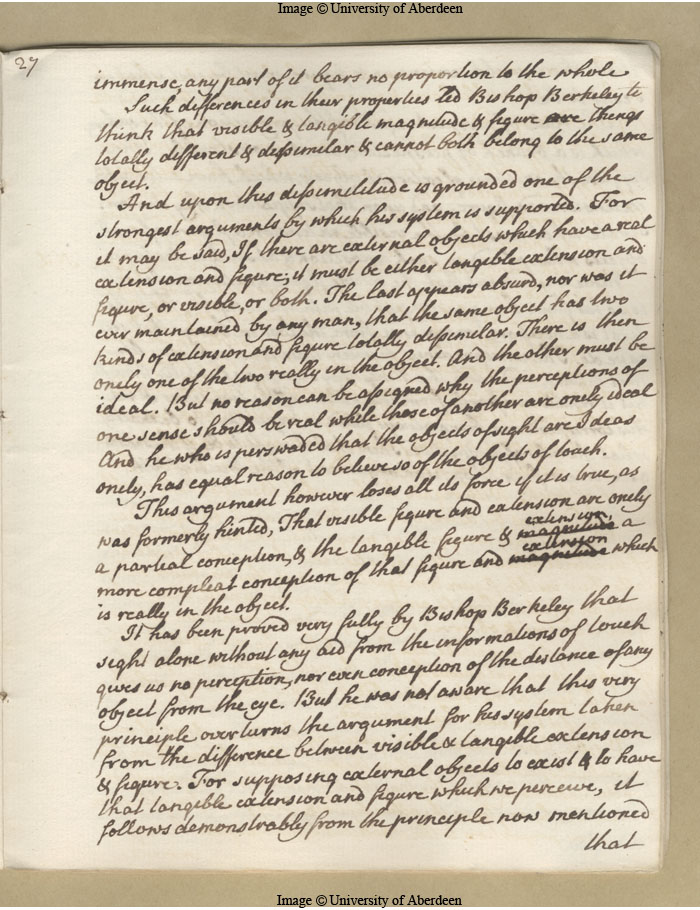 Image © University of Aberdeen
27
immense, any part of it bears no proportion to the whole
Such differences in their properties led Bishop Berkeley to
think that visible & tangible magnitude & figure are things
totally different & dissimilar & cannot both belong to the same
object.
And upon this dissimilitude is grounded one of the
strongest arguments by which his system is supported. For
it may be said, If there are external objects which have a real
extension and figure; it must be either tangible extension and
figure, or visible, or both. The last appears absurd, nor was it
ever maintained by any man, that the same object has two
kinds of extension and figure totally dissimilar. There is then
onely one of the two really in the object. And the other must be
ideal. But no reason can be assigned why the perceptions of
one sense should be real while those of another are onely ideal
And he who is perswaded that the objects of sight are Ideas
onely, has equal reason to believe so of the objects of touch.
This argument however loses all its force if it is true, as
was formerly hinted, That visible figure and extension are onely
extension,
a partial conception, & the tangible figure & magnitude a
extension
more compleat conception of that figure and magnitude which
is really in the object.
It has been proved very fully by Bishop Berkeley that
sight alone without any aid from the informations of touch
gives us no perception, nor even conception of the distance of any
object from the eye. But he was not aware that this very
principle overturns the argument for his system taken
from the difference between visible & tangible extension
& figure. For supposing external objects to exist & to have
that tangible extension and figure which we perceive, it
follows demonstrably from the principle now mentioned
that
Image © University of Aberdeen